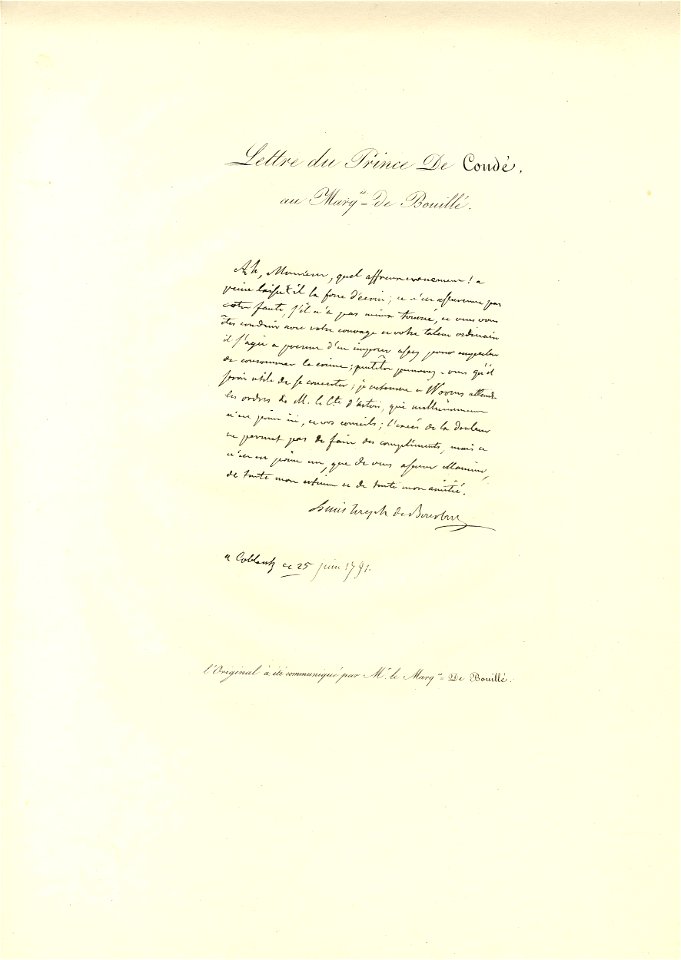 Lettre du Prince De Condé.
au Marq.is De Bouillé.
Ah, Monsieur, quel affreux evenement! a
peine laisse t'il la force d'écrire; ce n'est assurement pas
votre faute, s'il n'a pas mieux tourné, et vous vous
êtes conduit avec votre courage et votre talent ordinaire
il s'agit a present d'en imposer assez pour empecher
de consommer le crime; peutêtre pensez-vous qu'il
seroit utile de se concerter; je retourne a Worms attendre
les ordres de M. le Cte d'artois, qui malheureusement
n'est point ici, et vos conseils; l'excès de la douleur
ne permet pas de faire des compliments, mais ce
n'en est point un, que de vous assurer Monsieur,
de toute mon estime et de toute mon amitié.
Louis Joseph de Bourbon
a Coblentz ce 25 juin 1791.
l'Original a été communiqué par Mr. le Marq.is De Bouillé.